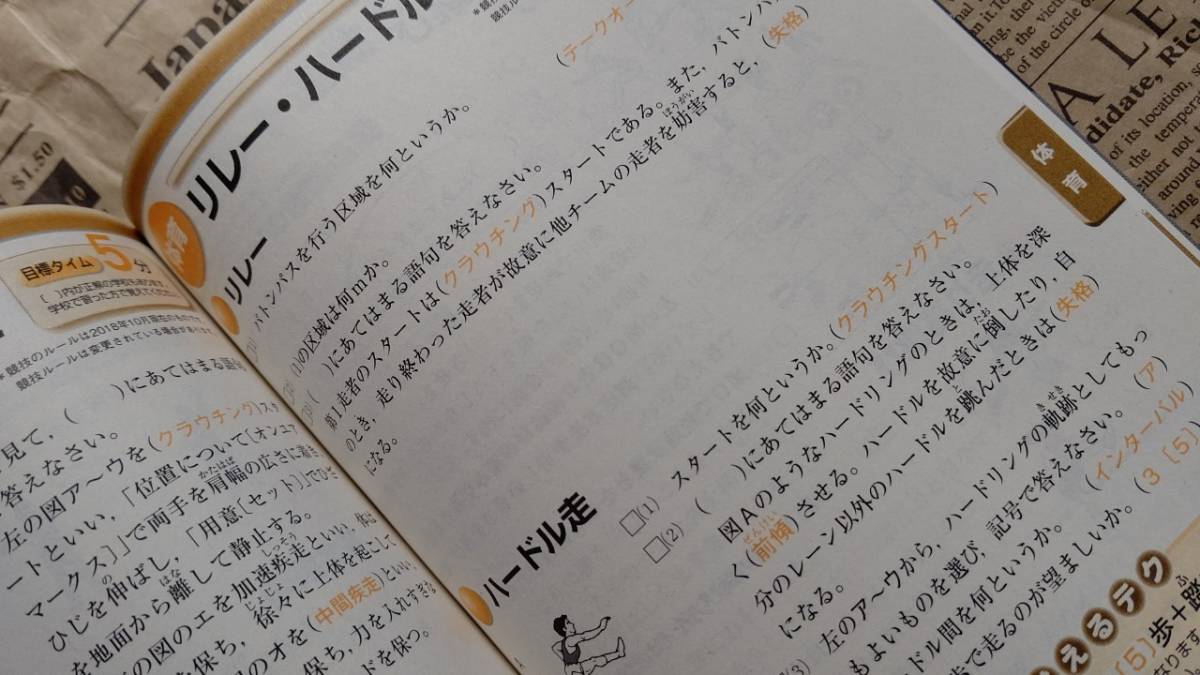 Jana
$1.50
体育
リレー・ハードル
リレー
バトンパスを行う区域を何というか。
(テークオー
(1)の区域は何mか。
( )にあてはまる語句を答えなさい。
第1走者のスタートは(クラウチング)スタートである。また,バトンパ
のとき,走り終わった走者が故意に他チームの走者を妨害すると,(失格)
になる。
ハードル走
□(1) スタートを何というか。(クラウチングスタート)
□(2) ( )にあてはまる語句を答えなさい。
図Aのようなハードリングのときは,上体を深
く(前傾)させる。ハードルを故意に倒したり,自
分のレーン以外のハードルを跳んだときは(失格)
になる。
(3) 左のア〜ウから,ハードリングの軌跡としてもっ
もよいものを選び,記号で答えなさい。(ア)
ドル間を何というか。(インターバル)
歩で走るのが望ましいか。(3〔5〕
えるテク
〔5〕歩+踏
なります
体育
目標タイム 5分
〔 〕内が正解の学校もあります。
学校で習った方で覚えてください
*競技のルールは2018年10月現在のもの
競技ルールは変更されている場合があります
( )にあてはまる語句
見て,
答えなさい。
左の図ア〜ウを(クラウチング)スタ
ートといい,「位置について〔オンユア
マークス〕」で両手を肩幅の広さに置き
ひじを伸ばし,「用意〔セット〕」で
を地面から離して静止する。
の図のエを加速疾走といい,
を保ち,徐々に上体を起こして
のオを(中間疾走)といい,
保ち,力を入れすぎ
ドを保つ。
A LE
didate, Rich
of its location,
the temper
either not
around
of the circle of
be the victi